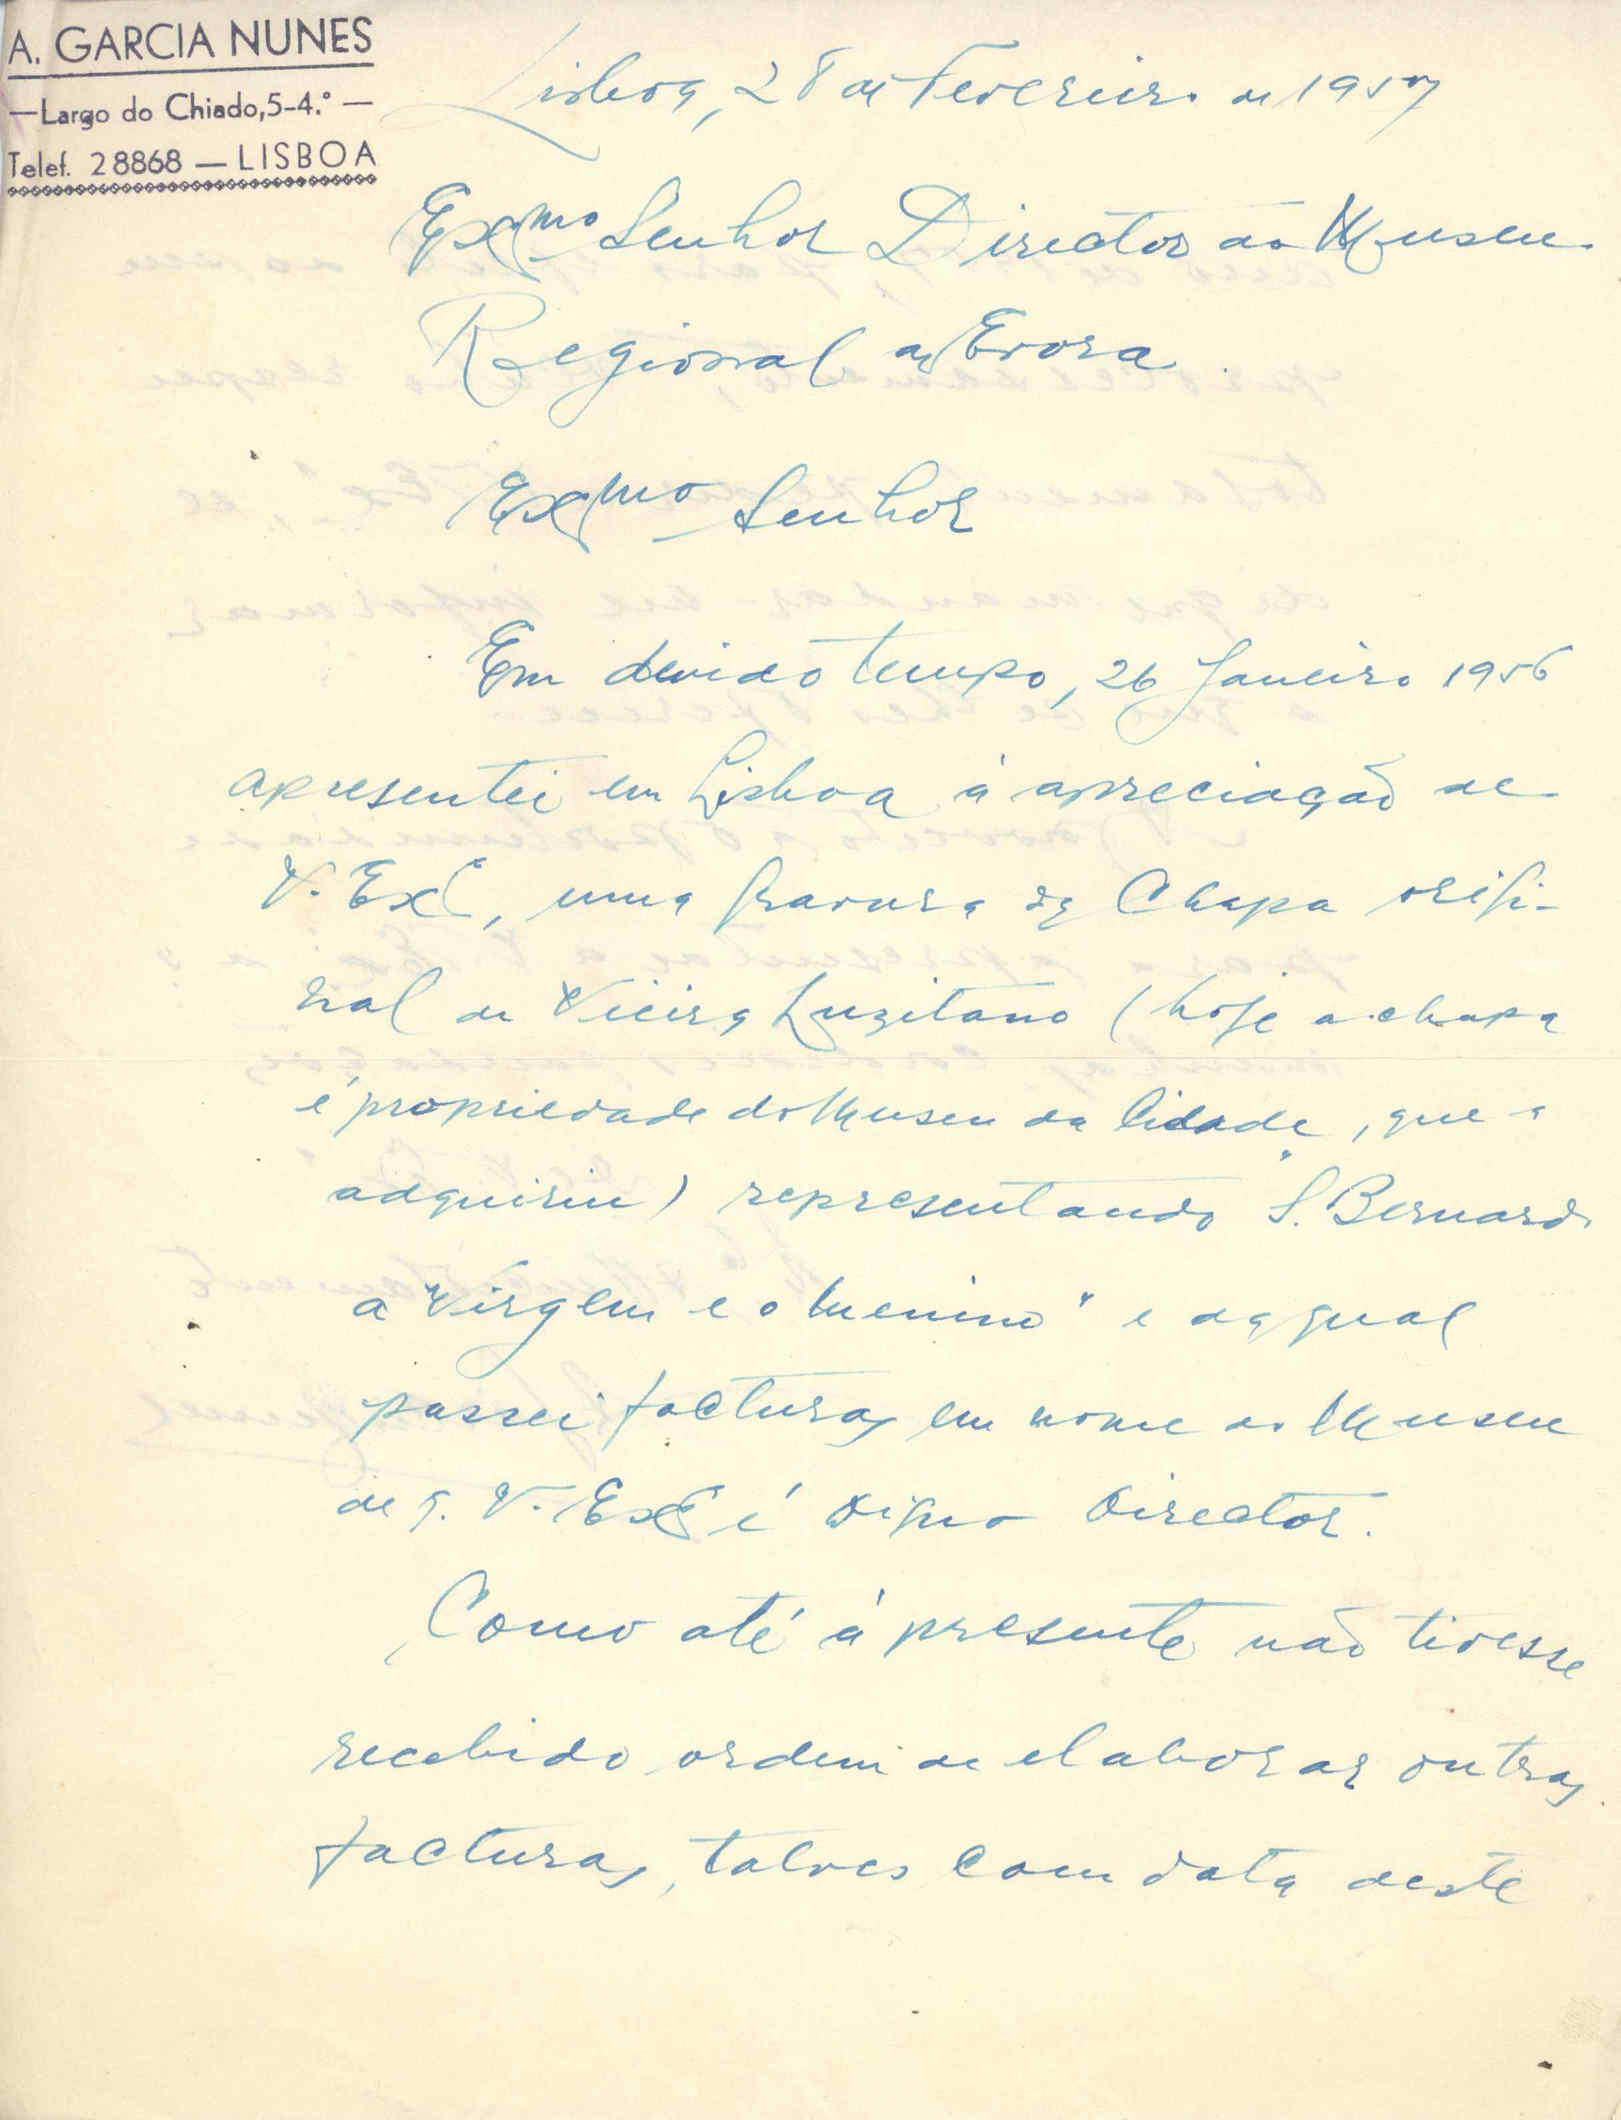 A. GARCIA NUNES
—Largo do Chiado, 5-4.º —
Telef. 28868 — LISBOA
Lisboa, 28 de Fevereiro de 1957
Exmo Senhor Director do Museu
Regional de Evora.
Exmo Senhor
Em devido tempo, 26 Janeiro 1956
apresentei em Lisboa à apreciação de
V. Exª, uma gravura da Chapa origi-
nal de Vieira Luzitano (hoje a chapa
é propriedade do Museu da Cidade, que a
adquiriu) representando "S. Bernardo
a Virgem e o Menino" e da qual
passei facturas em nome do Museu
de q. V. Exª é digno Director.
Como até à presente não tivesse
recebido ordem de elaborar outras
facturas, talves com data deste